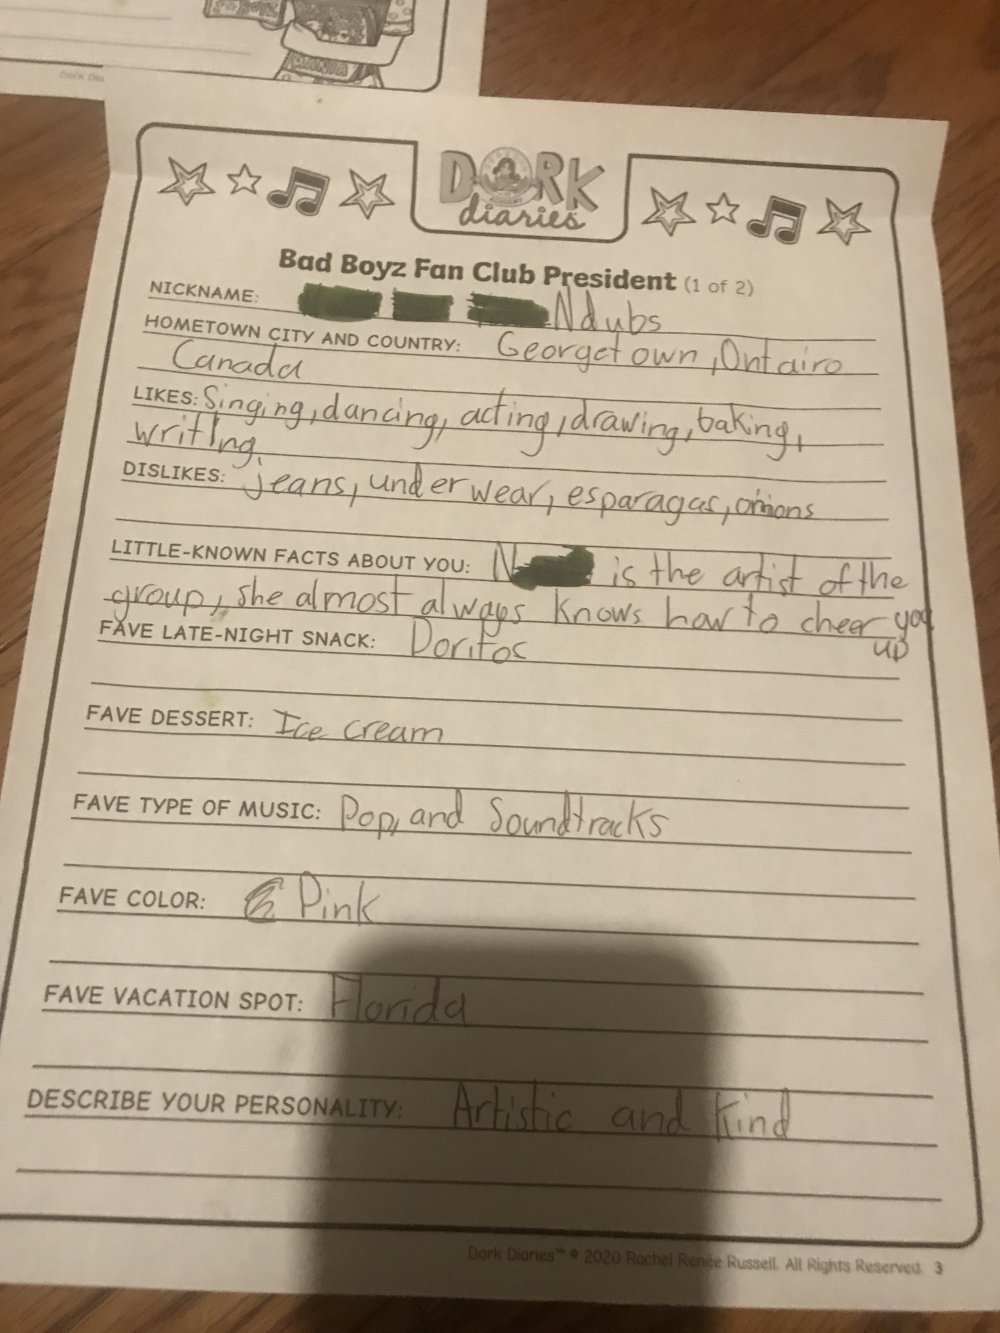 MANIA
Dork Dia
DORK
diaries
Bad Boyz Fan Club President (1 of 2)
NICKNAME: Ndubs
HOMETOWN CITY AND COUNTRY: Georgetown, Ontairo
Canada
LIKES: Singing, dancing, acting, drawing, baking,
writing
DISLIKES: jeans, underwear, esparagas, onions
LITTLE-KNOWN FACTS ABOUT YOU: N is the artist of the
group, she almost always knows how to cheer you
up
FAVE LATE-NIGHT SNACK: Doritos
FAVE DESSERT: Ice cream
FAVE TYPE OF MUSIC: Pop, and Soundtracks
FAVE COLOR: Pink
FAVE VACATION SPOT: Florida
DESCRIBE YOUR PERSONALITY: Artistic and Kind
Dork Diaries™ © 2020 Rachel Renée Russell. All Rights Reserved. 3